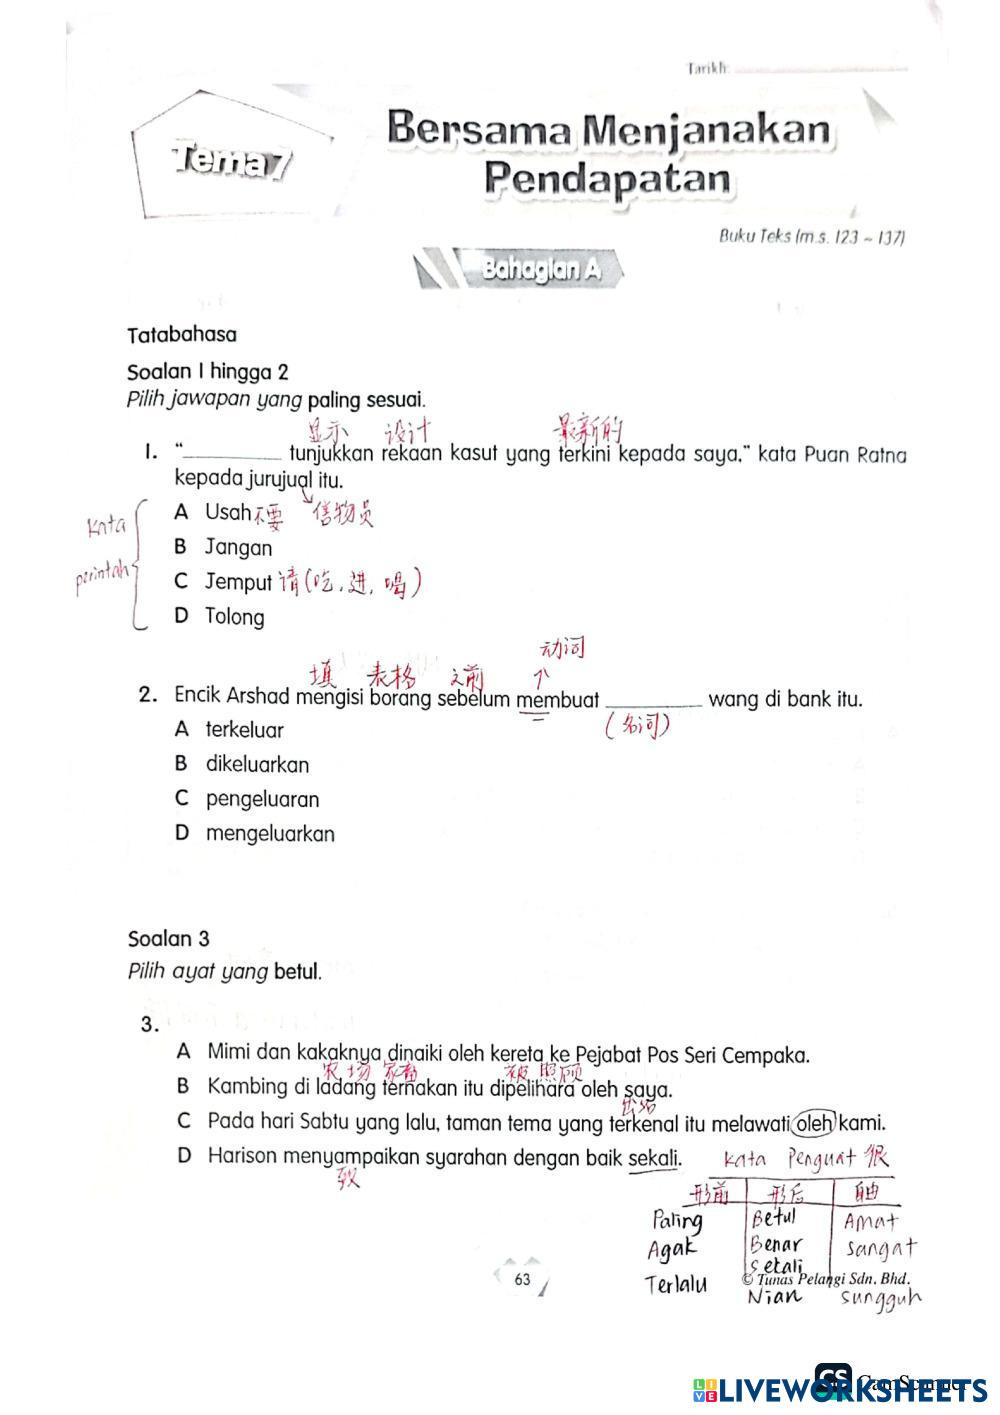 Tarikh:
Tema 7
Bersama Menjanakan
Pendapatan
Buku Teks (m.s. 123 ~ 137)
Bahagian A
Tatabahasa
Soalan 1 hingga 2
Pilih jawapan yang paling sesuai.
显示 设计 最新的
1. "__________ tunjukkan rekaan kasut yang terkini kepada saya," kata Puan Ratna
kepada jurujual itu.
Kata
perintah
A Usah 不要 信物员
B Jangan
C Jemput 请(吃, 进, 喝)
D Tolong
动词
填 表格 之前 ↑
2. Encik Arshad mengisi borang sebelum membuat __________ wang di bank itu.
(名词)
A terkeluar
B dikeluarkan
C pengeluaran
D mengeluarkan
Soalan 3
Pilih ayat yang betul.
3.
A Mimi dan kakaknya dinaiki oleh kereta ke Pejabat Pos Seri Cempaka.
农场 家畜 被照顾
B Kambing di ladang ternakan itu dipelihara oleh saya.
出名
C Pada hari Sabtu yang lalu, taman tema yang terkenal itu melawati oleh kami.
D Harison menyampaikan syarahan dengan baik sekali.
致
Kata Penguat 很
形前 形后 自由
Paling Betul Amat
Agak Benar Sangat
Sekali
Terlalu Nian Sungguh
63
© Tunas Pelangi Sdn. Bhd.
CS CamScanner
LIVEWORKSHEETS